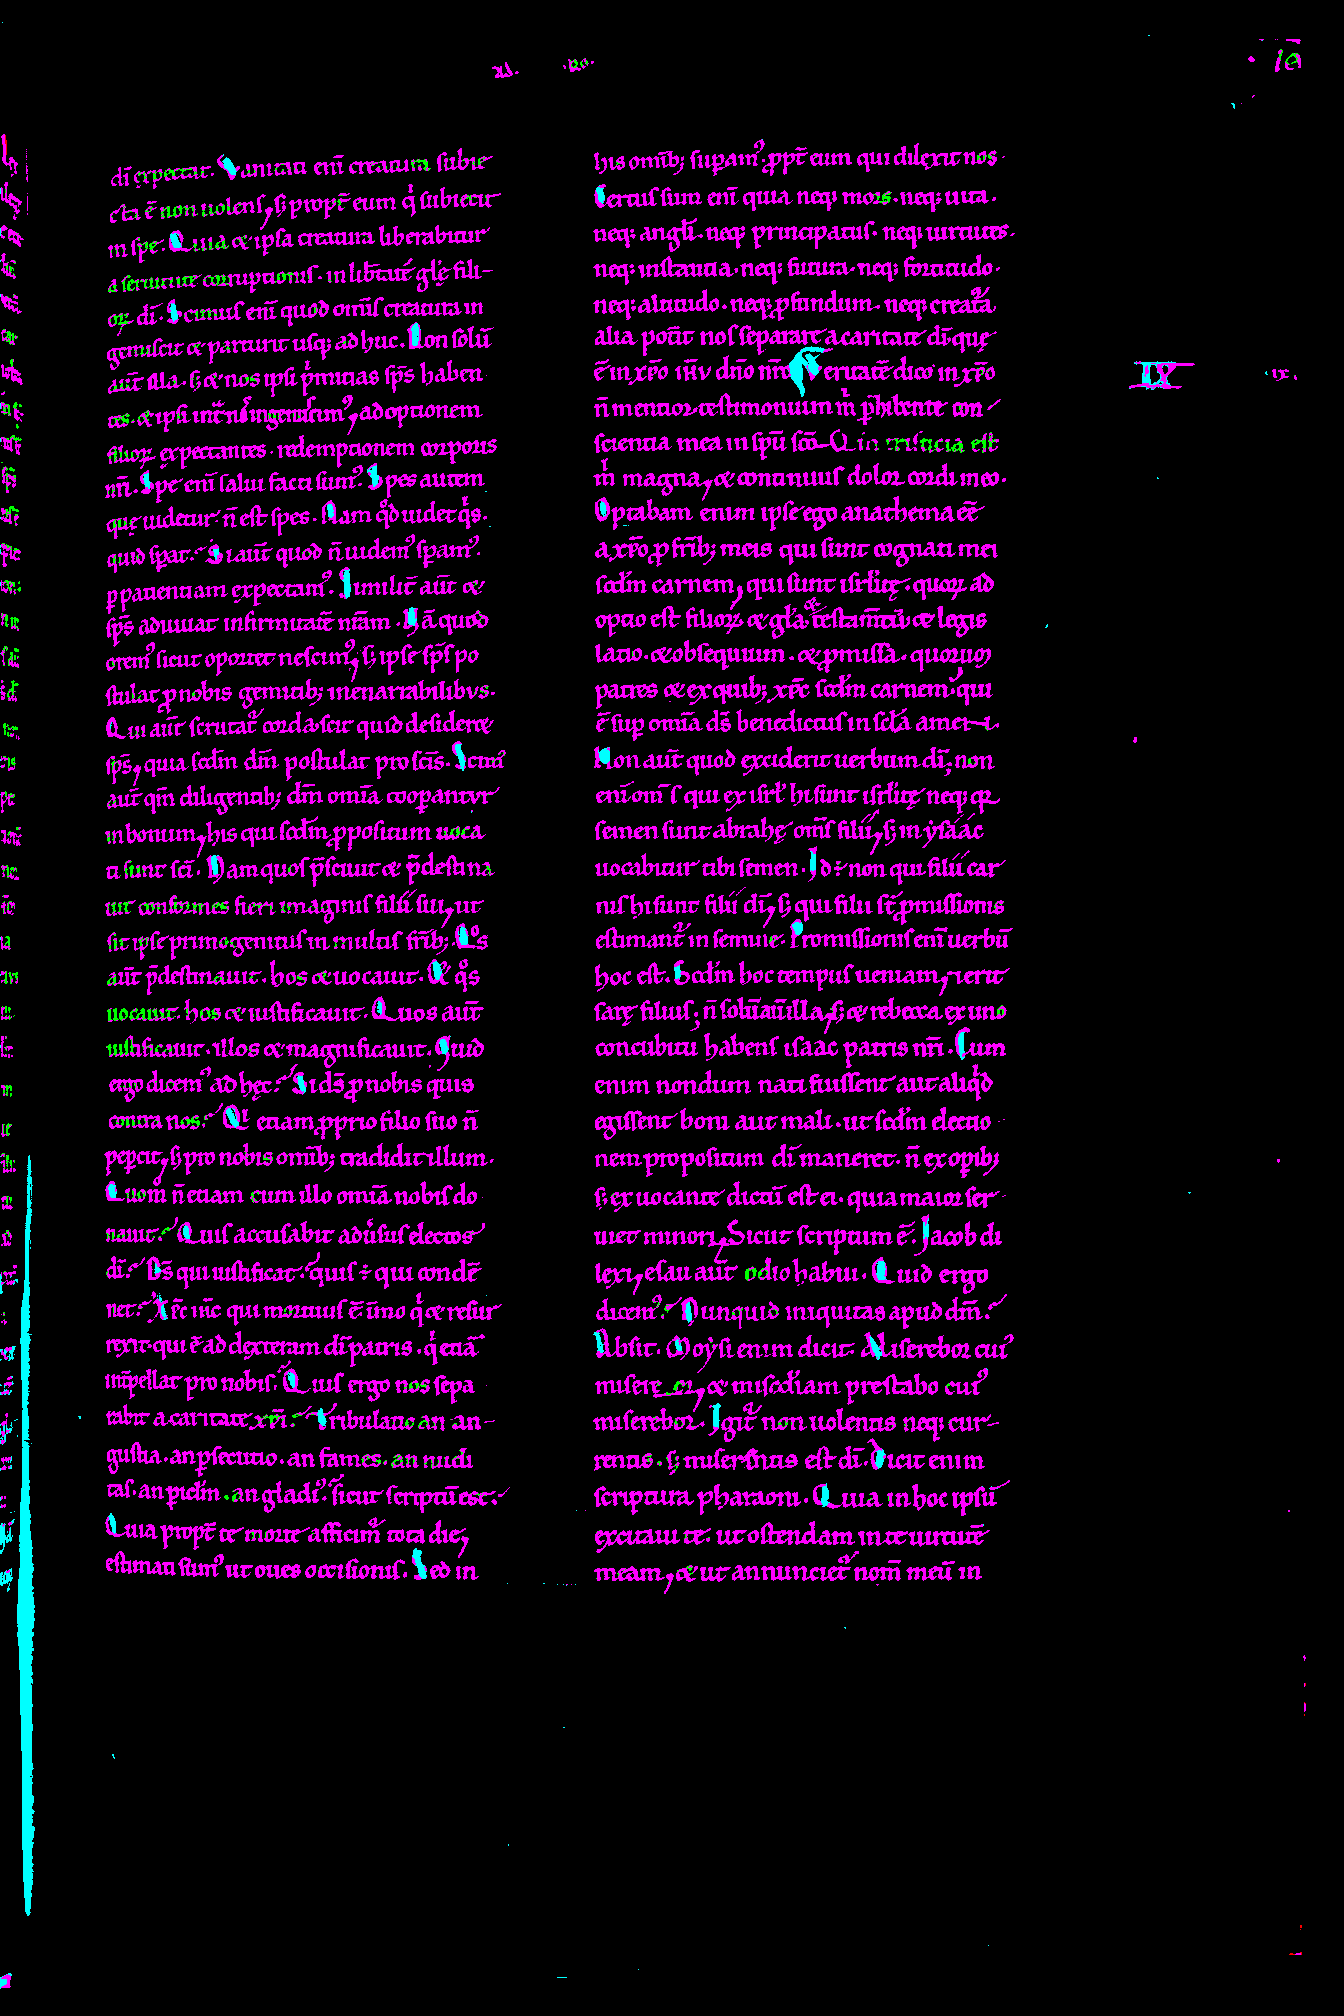 xl. .ro. 10
di᷑ expectat. Uanitati eni᷑ creatura subie
cta e᷑ non uolens, sꝫ ꝓpt᷑ eum qͥ subiecit
in spe. Quia & ipsa creatura liberabitur
a seruitute corruptionis. in lib᷑tate᷑ glę᷑ fili-
oꝝ di᷑. Scimus eni᷑ quod omi᷑s creatura in
gemiscit & parturit usqꝫ ad huc. Non solu᷑
aut᷑ illa. sꝫ & nos ipsi pͥmitias sp᷑s haben
tes. & ipsi int᷑ nos ingemiscimꝰ, adoptionem
filioꝝ expectantes. redemptionem corporis
nr᷑i. Spe eni᷑ salui facti sumꝰ. Spes autem
quę uidetur n᷑ est spes. Nam qͦd uidet qͥs.
quid sꝑat. Si aut᷑ quod n᷑ uidemꝰ sꝑamꝰ.
ꝑ patientiam expectamꝰ. Similit᷑ aut᷑ &
sp᷑s adiuuat infirmitate᷑ nr᷑am. Na᷑ quid
oremꝰ sicut oportet nescimꝰ, sꝫ ipse sp᷑s po
stulat ꝓ nobis gemitibꝫ inenarrabilibus.
Qui aut᷑ scrutat᷑ corda. scit quid desideret
sp᷑s, quia scd᷑m dm᷑ postulat pro sci᷑s. Scimꝰ
aut᷑ qm᷑ diligentibꝫ dm᷑ omi᷑a cooꝑantur
in bonum, his qui scd᷑m ꝓpositum uoca
ti sunt sci᷑. Nam quos p᷑sciuit & p᷑destina
uit conformes fieri imaginis filii sui, ut
sit ipse primogenitus in multis fri᷑bꝫ. Qͦs
aut᷑ p᷑destinauit. hos & uocauit. Et qͦs
uocauit. hos & iustificauit. Quos aut᷑
iustificauit. illos & magnificauit. Quid
ergo dicemꝰ ad hęc. Si ds᷑ ꝓ nobis quis
contra nos. Qͥ etiam ꝓprio filio suo n᷑
peꝑcit, sꝫ pro nobis omi᷑bꝫ tradidit illum.
Quom᷑ n᷑ etiam cum illo omi᷑a nobis do
nauit. Quis accusabit aduͥsus electos
di᷑. Ds᷑ qui iustificat. quis ÷ qui conde᷑
net. Xpc᷑ ih᷑c qui mortuus e᷑ immo qͥ & resur
rexit. qui e᷑ ad dexteram di᷑ patris. qͥ etia᷑
int᷑pellat pro nobis. Quis ergo nos sepa
rabit a caritate xpi᷑. Tribulatio an an-
gustia. an ꝑsecutio. an fames. an nudi
tas. an ꝑicl᷑m. an gladiꝰ. sicut scriptu᷑ est.
Quia propt᷑ te morte afficimur᷑ tota die,
estimati sumꝰ ut oues occisionis. Sed in
his omi᷑bꝫ suꝑamꝰ. ꝓpt᷑ eum qui dilexit nos.
Certus sum eni᷑ quia neqꝫ mors. neqꝫ uita.
neqꝫ angl᷑i. neqꝫ principatus. neqꝫ uirtutes.
neqꝫ instantia. neqꝫ futura. neqꝫ fortitudo.
neqꝫ altitudo. neqꝫ ꝓfundum. neqꝫ creat᷑a
alia pot᷑it nos separare a caritate di᷑. quę
e᷑ in xpo᷑ ih᷑u dno᷑ nr᷑o. Ueritate᷑ dico in xpo᷑
IX .ix.
n᷑ mentior. testimonium mͥ ꝑhibente con
scientia mea in spu᷑ sco᷑. Qm᷑ tristicia est
mͥ magna, & continuus dolor cordi meo.
Optabam enim ipse ego anathema ee᷑
a xpo᷑ ꝓ fri᷑bꝫ meis qui sunt cognati mei
scd᷑m carnem, qui sunt isrl᷑itę. quoꝝ ad
optio est filioꝝ & gl᷑a & testam᷑tu᷑ & legis
latio. & obsequium. & ꝓmissa. quorum
patres & ex quibꝫ xpc᷑ scd᷑m carnem. qui
e᷑ suꝑ omi᷑a ds᷑ benedictus in scl᷑a amen.
Non aut᷑ quod exciderit uerbum di᷑, non
eni᷑ omi᷑s qui ex isrl᷑ hi sunt isrl᷑itę neqꝫ qͥ
semen sunt abrahę omi᷑s filii, sꝫ in ysaac
uocabitur tibi semen. Id ÷ non qui filii car
nis hi sunt filii di᷑, sꝫ qui filii st᷑ ꝓmissionis
estimant᷑ in semine. Promissionis eni᷑ uerbu᷑
hoc est. Scd᷑m hoc tempus ueniam, & erit
sarę filius, n᷑ solu᷑ aut᷑ illa, sꝫ & rebecca ex uno
concubitu habens isaac patris nr᷑i. Cum
enim nondum nati fuissent aut aliqͥd
egissent boni aut mali. ut scd᷑m electio
nem propositum di᷑ maneret. n᷑ ex oꝑibꝫ
sꝫ ex uocante dictu᷑ est ei. quia maior ser
uiet minori, Sicut scriptum e᷑. Jacob di
lexi, esau aut᷑ odio habui. Quid ergo
dicemꝰ. Nunquid iniquitas apud dm᷑.
Absit. Moysi enim dicit. Miserebor cuiꝰ
misereor, & mis᷑cdiam prestabo cuiꝰ
miserebor. Igit᷑ non uolentis neqꝫ cur-
rentis. sꝫ miserentis est di᷑. Dicit enim
scriptura pharaoni. Quia in hoc ipsu᷑
excitaui te. ut ostendam in te uirtute᷑
meam, & ut annunciet᷑ nom᷑ meu᷑ in